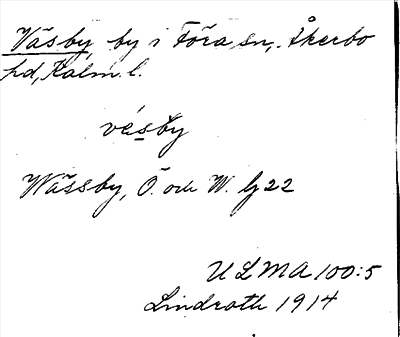 Väsby, by i Föra sn, Åkerbo
hd, Kalm. l.
vésby
Wässby, Ö. och W. Gj 22
ULMA 100:5
Lindroth 1914